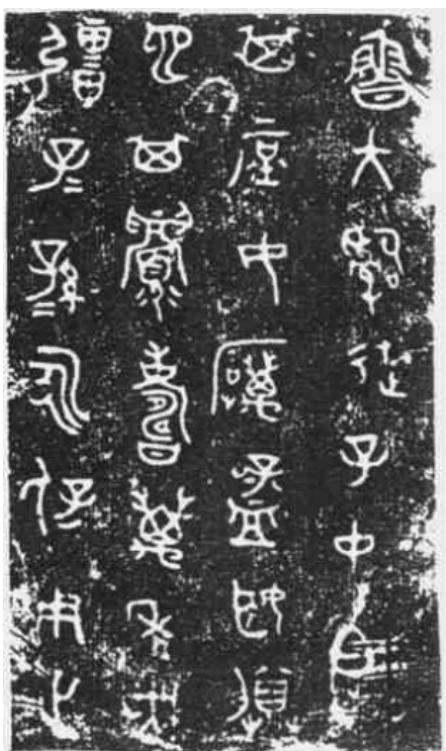 魯大𤔲徒子中白乍
其庶女厲孟姬賸
它其眉壽萬年無
疆子＝孫＝永保用之